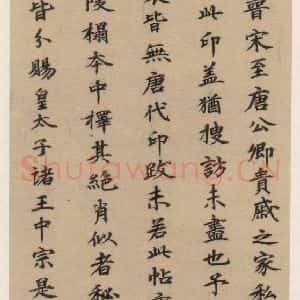 晉宋至唐公卿貴戚之家私
此印盖猶搜訪未盡也予
皆無唐代印政未若此帖
陵榻本中擇其絶肖似者秘
皆分賜皇太子諸王中宗是
Shufawang.CN